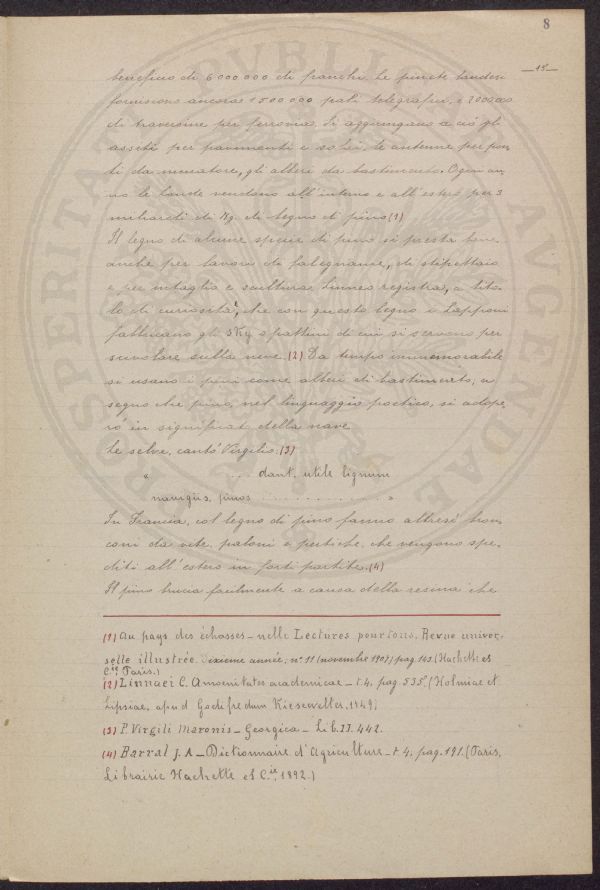 8
— 15 —
beneficio di 6 000 000 di franchi. Le pinete landesi
forniscono ancora 1 500 000 pali telegrafici, e 2 000 000
di traversine per ferrovia. Si aggiungano a ciò gli
assiti per pavimenti e solai, le antenne per pon,
ti da muratore, gli alberi da bastimento. Ogni an,
no le lande vendono all'interno e all'estero per 3
miliardi di Kg. di legno di pino (1)
Il legno di alcune specie di pino si presta bene
anche per lavori da falegname, di stipettaio
e per intaglio e scultura. Linneo registra, a tito,
lo di curiosità, che con questo legno i Lapponi
fabbricano gli sky o pattini di cui si servono per
scivolare sulla neve. (2) Da tempo immemorabile
si usano i pini come alberi di bastimento, a
segno che pino, nel linguaggio poetico, si adope,
rò in significato della nave
Le selve, cantò Virgilio: (3)
" ... dant utile lignum
navigiis, pinos . . . . . . . . . . . . . "
In Francia, col legno di pino fanno altresì bron,
coni da vite, paloni e pertiche, che vengono spe,
diti all'estero in forti partite. (4)
Il pino brucia facilmente a causa della resina che
(1) Au pays des échasses — nelle Lectures pour tous, Revue univer,
selle illustrée. Dixieme année, n.° 11 (novembre 1907) pag. 143. (Hachette et
C.ie Paris.)
(2) Linnaei C. Amoenitates academicae — t. 4, pag. 535. (Holmiae et
Lipsiae, apud Godefredum Kiesewetter, 1749)
(3) P. Virgili Maronis — Georgica — Lib. II. 442.
(4) Barral J. A — Dictionnaire d'Agriculture — t. 4, pag. 191. (Paris,
Librairie Hachette et C.ie, 1892.)
PVBLICAE
PROSPERITATI
AVGENDAE